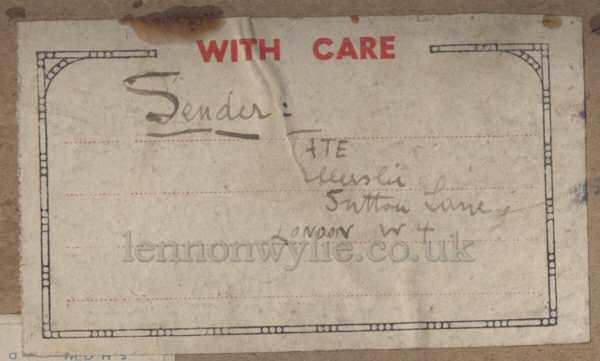 WITH CARE
Sender:
TATE
Sutton Lane
LONDON W4
lennonwylie.co.uk